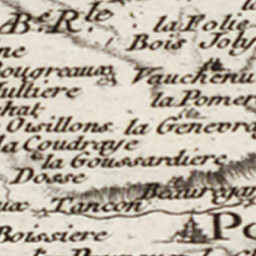 Be. Rle.
la Folie
Bois Joly
ougreaux
Vauchenu
ultiere
la Pomer
hat
Ouisillons
la Genevra
la Coudraye
la Goussardiere
Dosse
Beauregar
ux
Tancon
Po
Boissiere